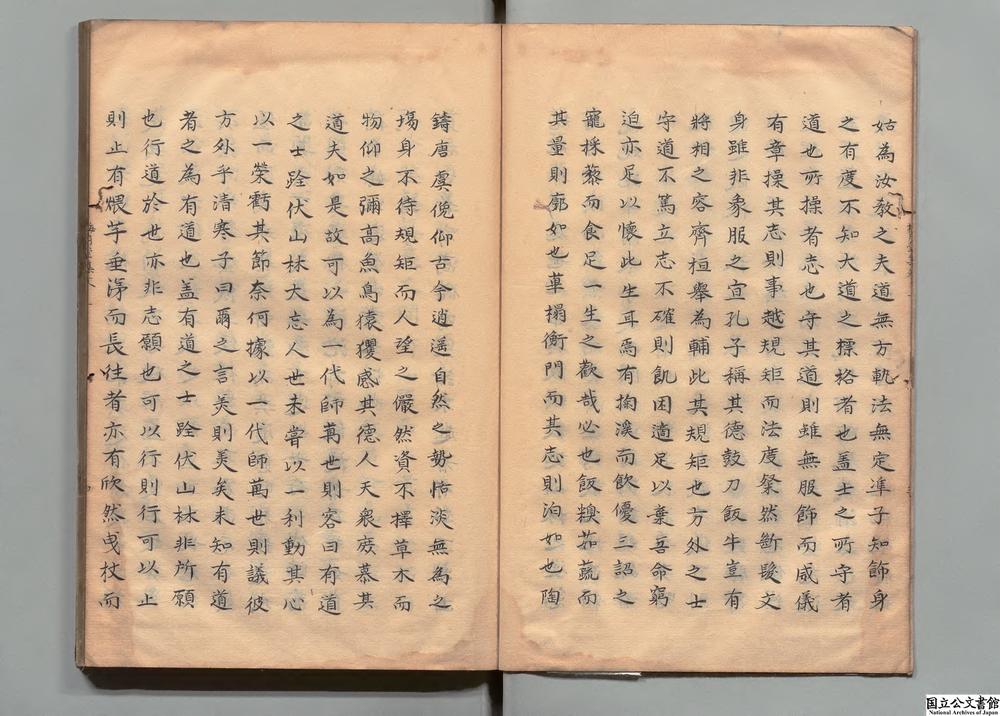 姑為汝教之夫道無方軌法無定準子知飾身
之有度不知大道之標格者也蓋士之所守者
道也所操者志也守其道則雖無服飾而威儀
有章操其志則事越規矩而法度粲然斷髮文
身雖非象服之宜孔子稱其德鼓刀飯牛豈有
將相之容齊桓舉為輔此其規矩也方外之士
守道不篤立志不確則飢困適足以棄吾命窮
迫亦足以懷此生耳焉有掬溪而飲優三詔之
寵採藜而食足一生之歡哉必也飯糗茹蔬而
其量則廓如也蓽搨衡門而其志則泊如也陶
鑄唐虞俛仰古今逍遥自然之勢恬淡無為之
塲身不待規矩而人望之儼然資不擇草木而
物仰之彌高魚鳥猿玃感其德人天衆庶慕其
道夫如是故可以為一代師萬世則客曰有道
之士跧伏山林大忘人世未嘗以一利動其心
以一榮虧其節奈何據以一代師萬世則議彼
方外乎清寒子曰爾之言美則美矣未知有道
者之為有道也盖有道之士跧伏山林非所願
也行道於世亦非志願也可以行則行可以止
則止有煨芋垂涕而長往者亦有欣然曳杖而
国立公文書館
National Archives of Japan